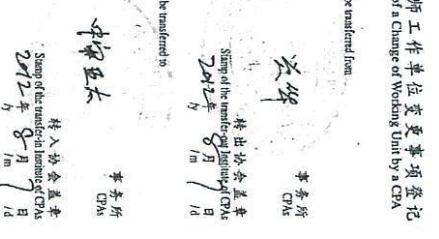 师工作单位变更事项登记
of a Change of Working Unit by a CPA
be transferred from
兴华
事务所
CPAs
转出协会盖章
Stamp of the transfer-out Institute of CPAs
2012年8月7日
/y /m /d
be transferred to
中审亚太
事务所
CPAs
转入协会盖章
Stamp of the transfer-in Institute of CPAs
2012年8月7日
/y /m /d